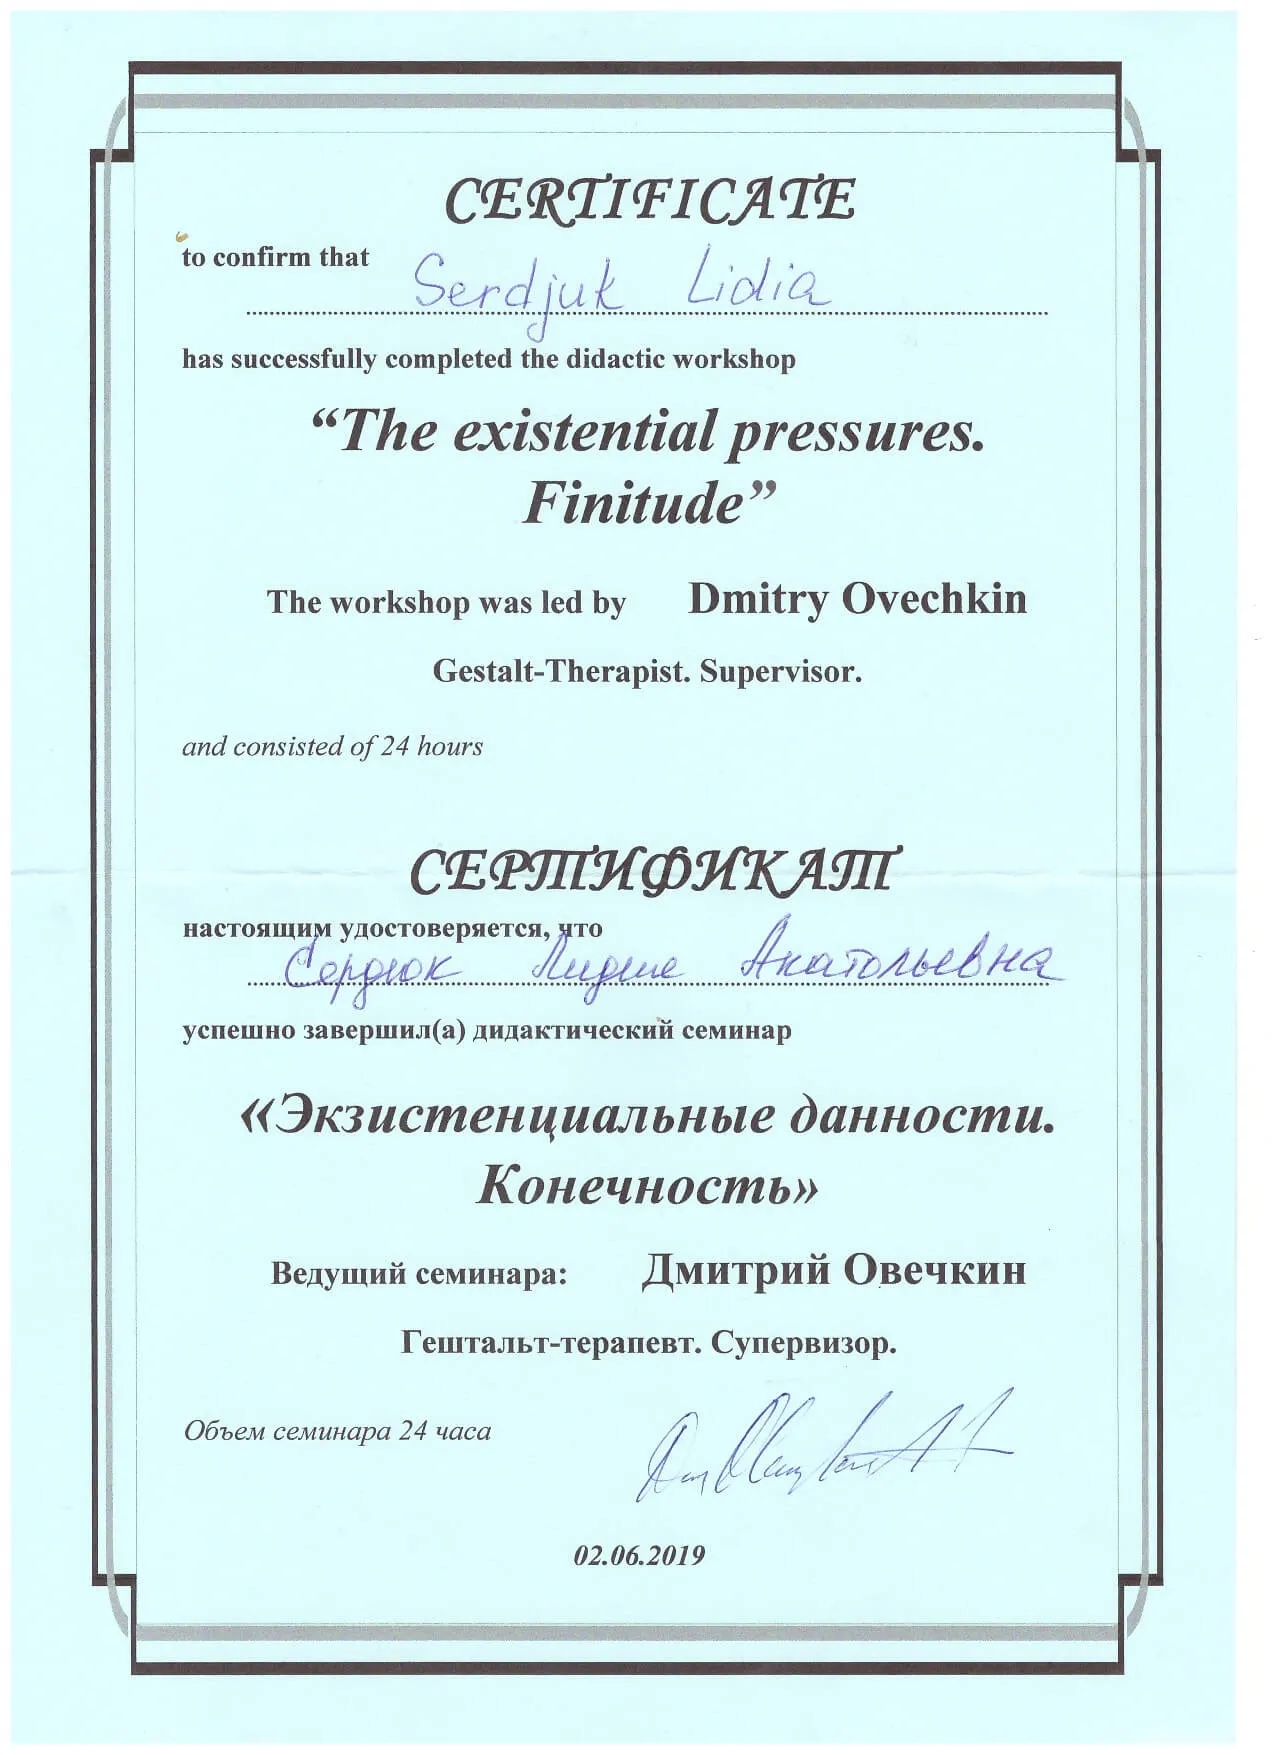 CERTIFICATE
to confirm that
Serdjuk Lidia
has successfully completed the didactic workshop
“The existential pressures.
Finitude”
The workshop was led by Dmitry Ovechkin
Gestalt-Therapist. Supervisor.
and consisted of 24 hours
СЕРТИФИКАТ
настоящим удостоверяется, что
Сердюк Лидие Анатольевна
успешно завершил(а) дидактический семинар
«Экзистенциальные данности.
Конечность»
Ведущий семинара: Дмитрий Овечкин
Гештальт-терапевт. Супервизор.
Объем семинара 24 часа
02.06.2019